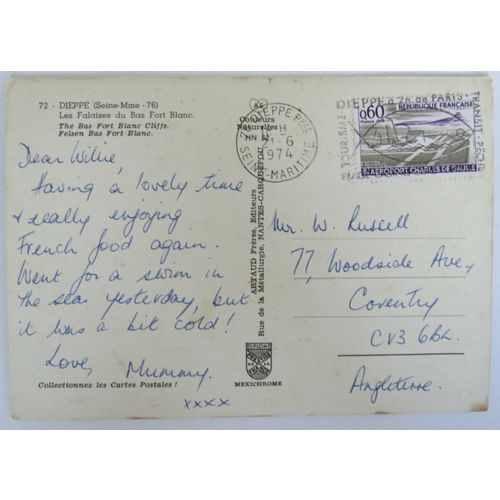 72 - DIEPPE (Seine-Mme - 76)
Les Falaises du Bas Fort Blanc.
The Bas Fort Blanc Cliffs.
Felsen Bas Fort Blanc.
Dear Willie,
Having a lovely time
& really enjoying
French food again.
Went for a swim in
the sea yesterday, but
it was a bit cold!
Love, Mummy.
xxxx
Collectionnez les Cartes Postales !
Couleurs
Naturelles
ARTAUD Frères, Editeurs
Rue de la Métallurgie, NANTES-CARQUEFOU
MEXICHROME
DIEPPE PPAL
1974
SEINE-MARITIME
DIEPPE à 2h de PARIS
TOURISME
TRANSIT
0,60
REPUBLIQUE FRANÇAISE
AEROPORT CHARLES DE GAULLE
Mr. W. Russell
77, Woodside Ave,
Coventry
CV3 6BL
Angleterre.